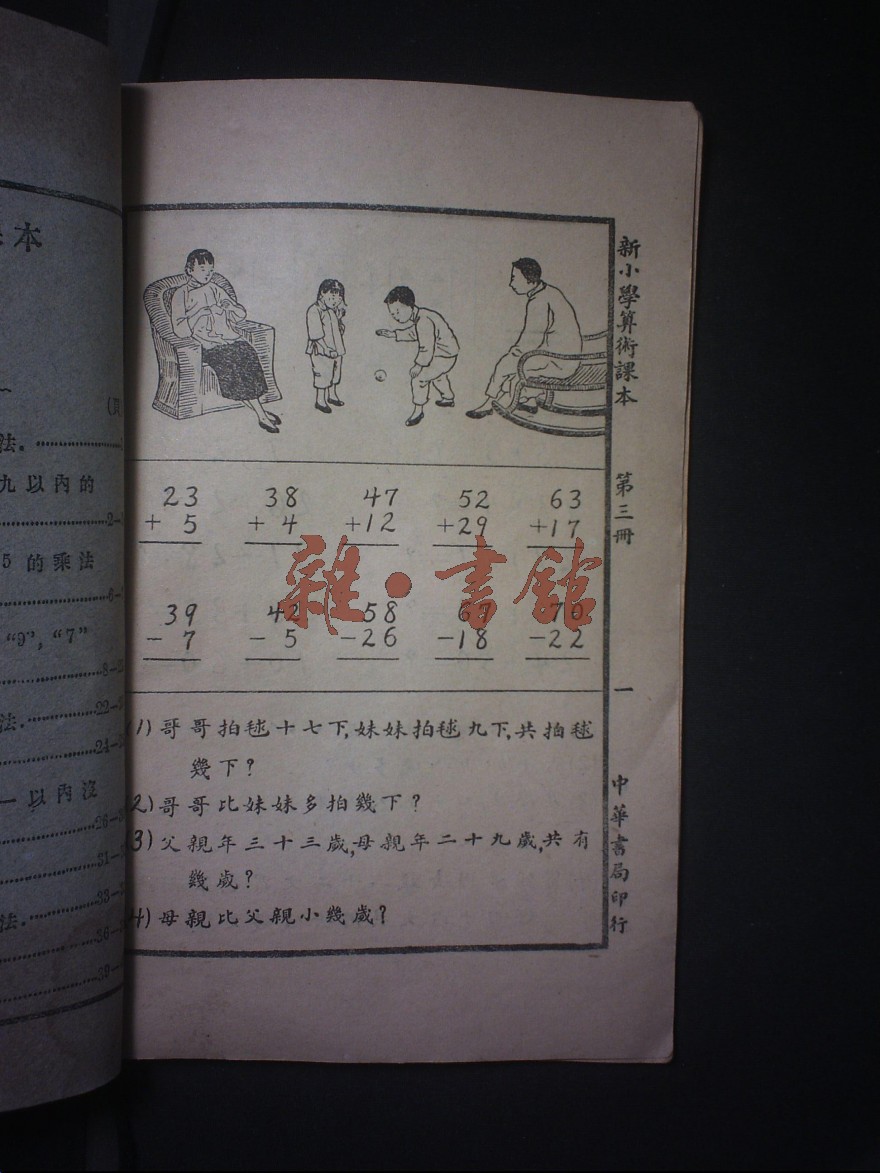 本
法.
九以內的
5 的乘法
“9”, “7”
8—
法.
22—
24—
一以內沒
26—
31—
33—
法.
36—
39—
新小學算術課本 第三冊 一 中華書局印行
23 38 47 52 63
+ 5 + 4 +12 +29 +17
39 42 58 67 70
- 7 - 5 -26 -18 -22
雜·書館
(1) 哥哥拍毬十七下,妹妹拍毬九下,共拍毬
幾下?
(2) 哥哥比妹妹多拍幾下?
(3) 父親年三十三歲,母親年二十九歲,共有
幾歲?
(4) 母親比父親小幾歲?